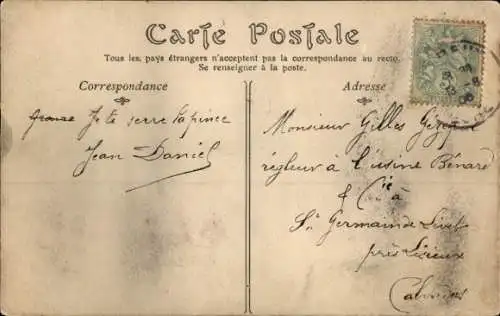 Carte Postale
Tous les pays étrangers n'acceptent pas la correspondance au recto.
Se renseigner à la poste.
Correspondance
Adresse
Je te serre la pince
Jean Daniel
Monsieur Gilles
régleur à l'usine Bénard
& Cie à
St Germain de Livet
près Lisieux
Calvados